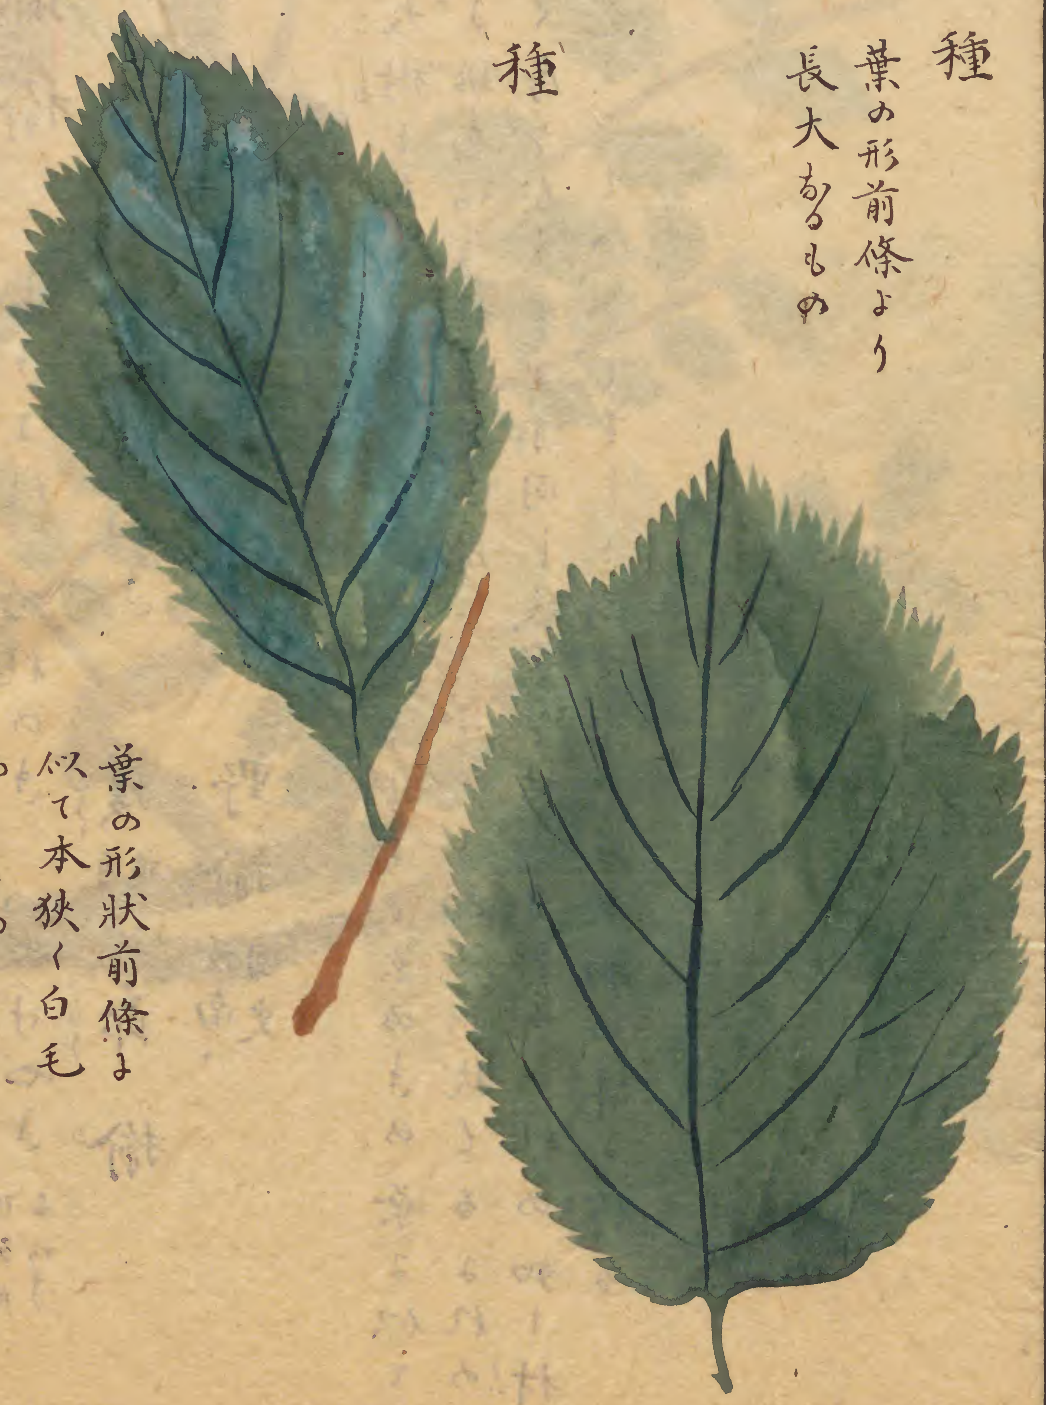 種
葉の形前條より
長大なるもの
種
葉の形状前條に
似て本狭く白毛